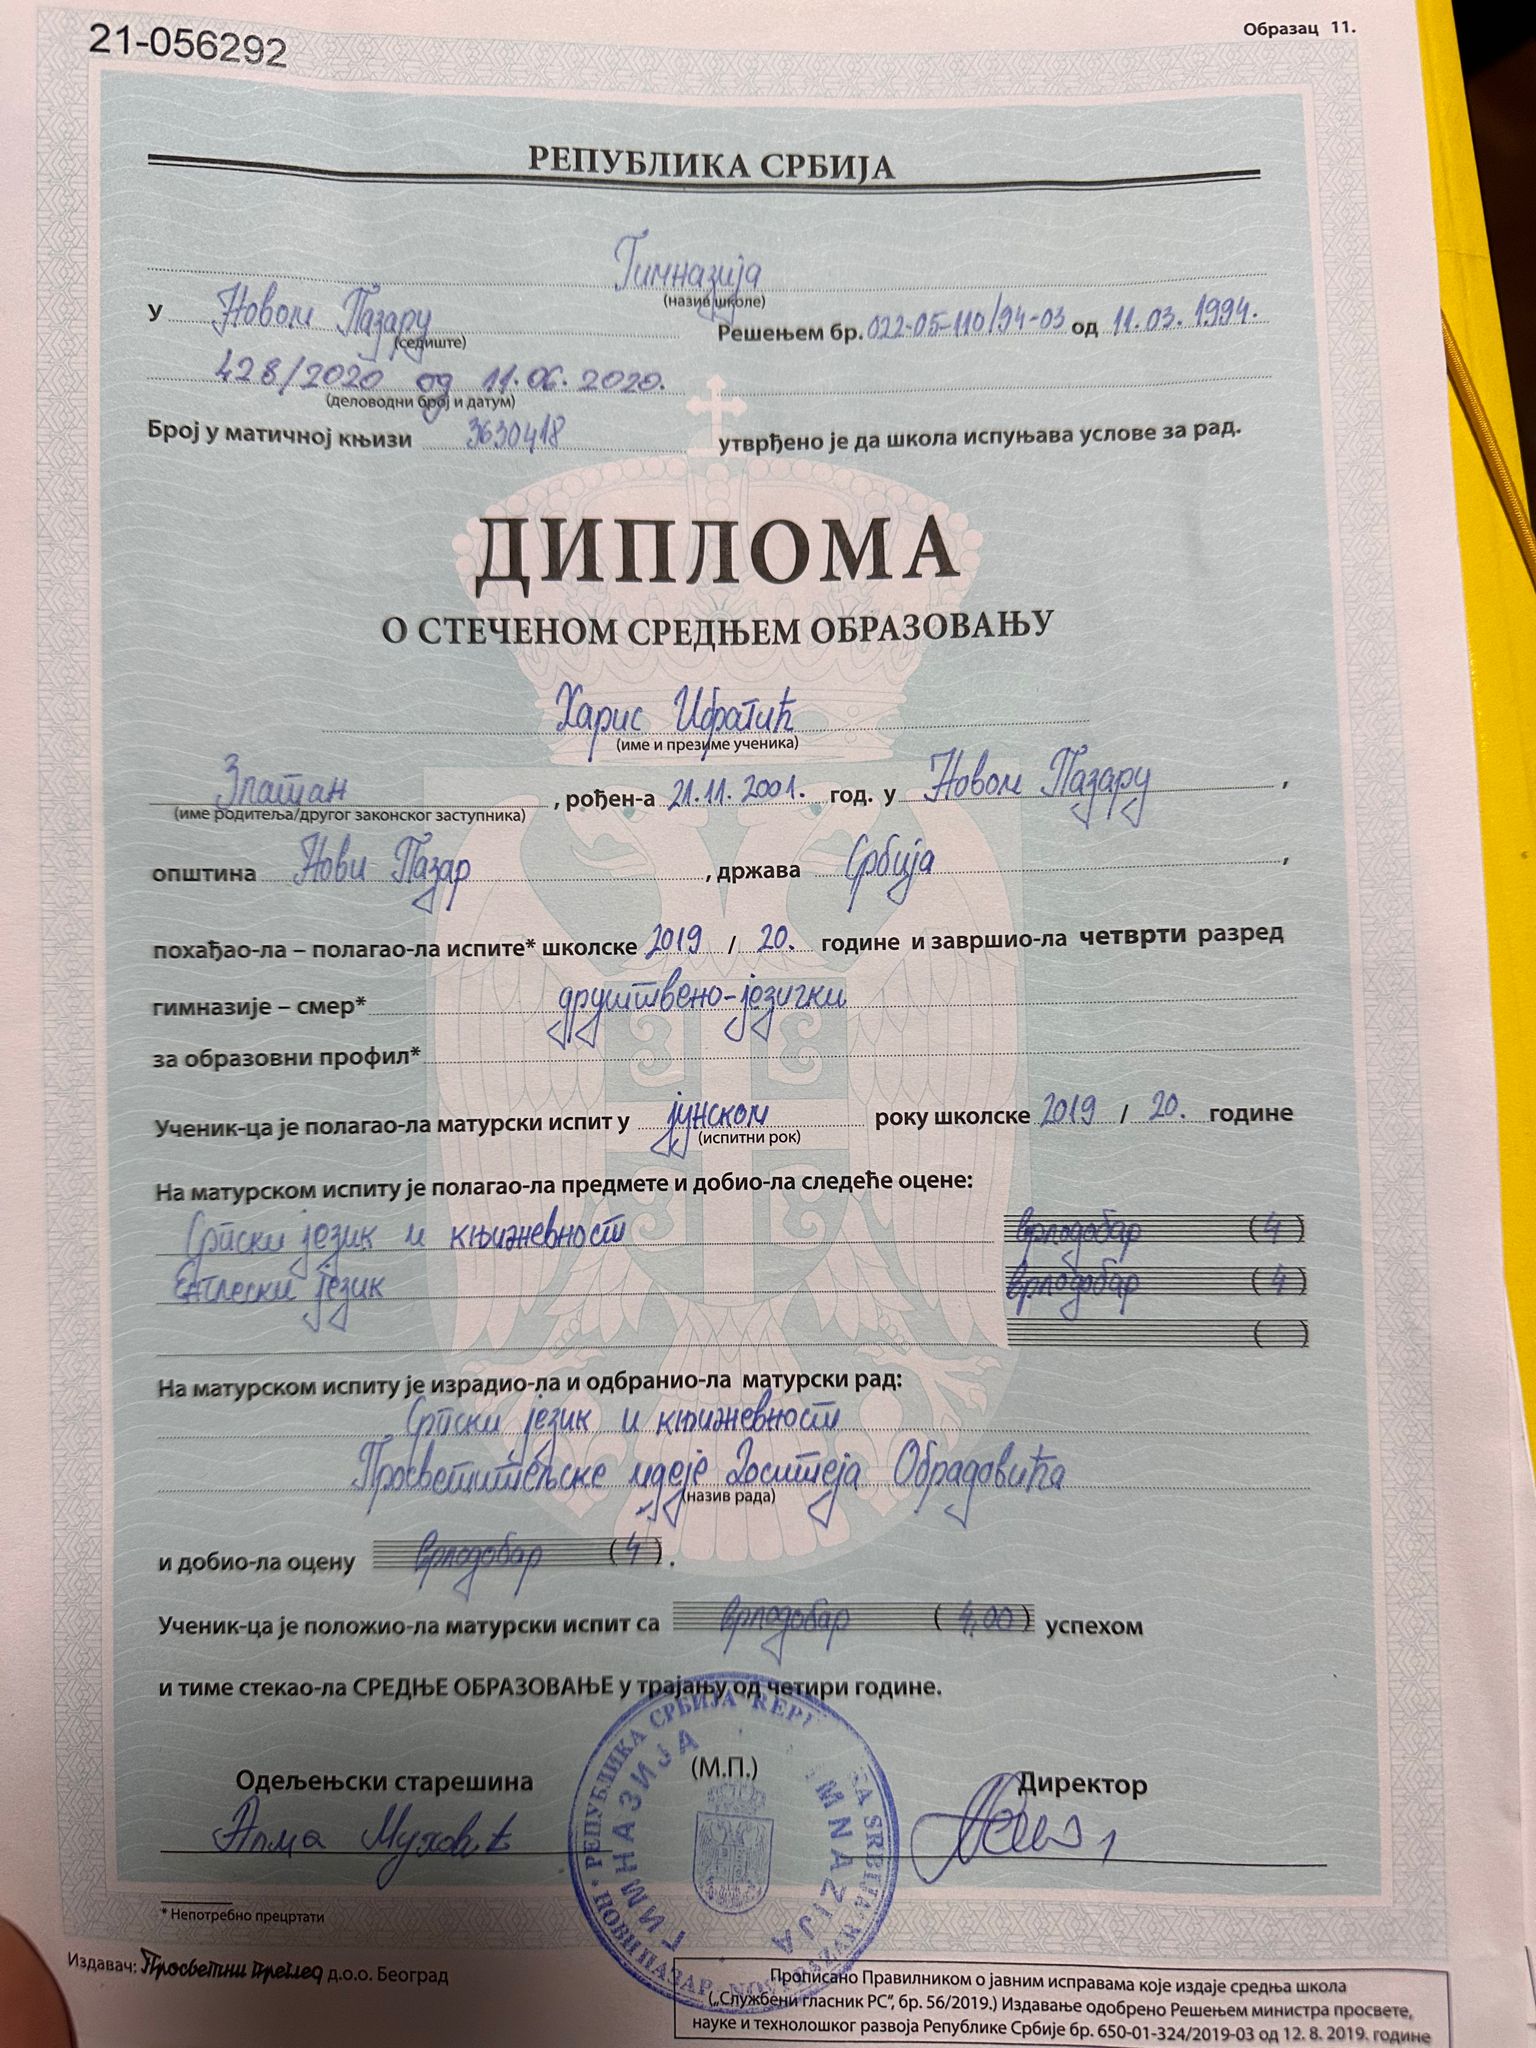 21-056292
Образац 11.
РЕПУБЛИКА СРБИЈА
Гимназија
(назив школе)
У Новом Пазару Решењем бр. 022-05-110/94-03 од 11.03.1994.
(седиште)
428/2020 од 11.06.2020.
(деловодни број и датум)
Број у матичној књизи 3630418 утврђено је да школа испуњава услове за рад.
ДИПЛОМА
О СТЕЧЕНОМ СРЕДЊЕМ ОБРАЗОВАЊУ
Харис
(име и презиме ученика)
Златан, рођен-а 21.11.2001. год. у Новом Пазару,
(име родитеља/другог законског заступника)
општина Нови Пазар, држава Србија,
похађао-ла – полагао-ла испите* школске 2019 / 20. године и завршио-ла четврти разред
гимназије – смер* друштвено-језички
за образовни профил*
Ученик-ца је полагао-ла матурски испит у јунском року школске 2019 / 20. године
(испитни рок)
На матурском испиту је полагао-ла предмете и добио-ла следеће оцене:
Српски језик и књижевност врлодобар (4)
Енглески језик врлодобар (4)
( )
На матурском испиту је израдио-ла и одбранио-ла матурски рад:
Српски језик и књижевност
Просветитељске идеје Доситеја Обрадовића
(назив рада)
и добио-ла оцену врлодобар (4).
Ученик-ца је положио-ла матурски испит са врлодобар (4,00) успехом
и тиме стекао-ла СРЕДЊЕ ОБРАЗОВАЊЕ у трајању од четири године.
Одељењски старешина (М.П.) Директор
Алма
РЕПУБЛИКА СРБИЈА
ГИМНАЗИЈА
НОВИ ПАЗАР
* Непотребно прецртати
Издавач: Просветни преглед д.о.о. Београд
Прописано Правилником о јавним исправама које издаје средња школа
(„Службени гласник РС“, бр. 56/2019.) Издавање одобрено Решењем министра просвете,
науке и технолошког развоја Републике Србије бр. 650-01-324/2019-03 од 12. 8. 2019. године